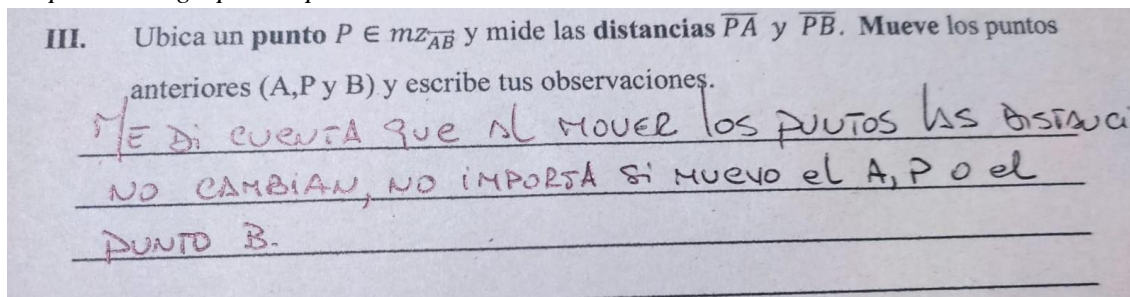 III. Ubica un punto P ∈ mz_AB y mide las distancias PA y PB. Mueve los puntos
anteriores (A,P y B) y escribe tus observaciones.
ME DI CUENTA QUE AL MOVER los PUNTOS LAS DISTANCI
NO CAMBIAN, NO IMPORTA SI MUEVO el A, P O el
PUNTO B.